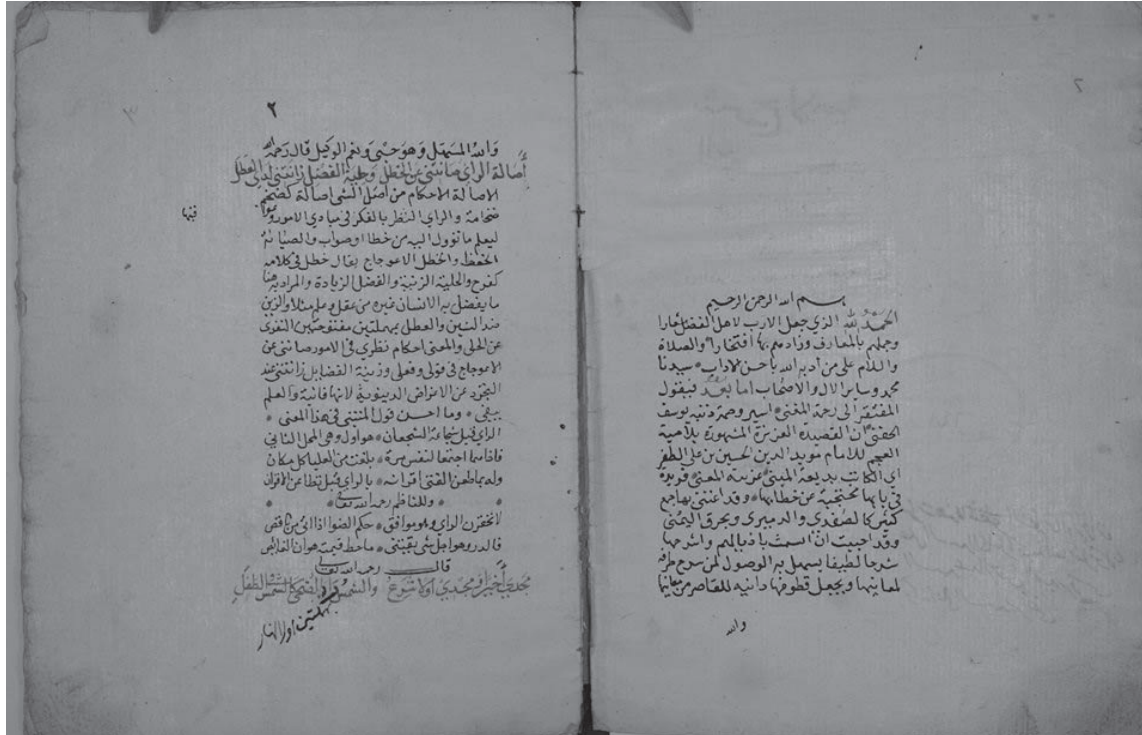 بسم الله الرحمن الرحيم
الحمد لله الذي جعل الادب لاهل الفضل شعارا
وجملهم بالمعارف وزادهم بها افتخارا والصلاة
والسلام على من أدبه الله باحسن الاداب سيدنا
محمد وساير الال والاصحاب اما بعد فيقول
المفتقر الى رحمة المغني اسير وصمة ذنبه يوسف
الحفني ان القصيدة العزيزة المشهورة بلامية
العجم للامام مويد الدين الحسين بن علي الطغر
اي الكاتب بديعة المبنى عزيزة المعنى فريدة
في بابها محتجبة عن خطابها وقد اعتنى بها جمع
كثير كالصفدي والدميري وبحرق اليمني
وقد احببت ان اتشبث باذيالهم واشرحها
شرحا لطيفا يسهل به الوصول لمن سرح طرفه
لمعانيها ويجعل قطوفها دانيه للقاصر من معانيها
والله
٢
والله المسهل وهو حسبي ونعم الوكيل قال رحمه الله
أصالة الراي صانتني عن الخطل وحلية الفضل زانتني لدى العطل
الاصالة الاحكام من اصل الشي اصالة كضخم
ضخامة والراي النظر بالفكر في مبادي الامور وعواقبها
ليعلم ما تؤول اليه من خطا او صواب والصيانة
الحفظ والخطل الاعوجاج يقال خطل في كلامه
كفرح والحلية الزينة والفضل الزيادة والمراد به هنا
ما يفضل به الانسان غيره من عقل وعلم مثلا والزين
ضد الشين والعطل بمهملتين مفتوحتين التعري
عن الحلي والمعنى احكام نظري في الامور صانني عن
الاعوجاج في قولي وفعلي وزينة الفضايل زانتني عند
التجرد عن الاعراض الدنيوية لانها فانية والعلم
يبقى وما احسن قول المتنبي في هذا المعنى
الراي قبل شجاعة الشجعان هو اول وهي المحل الثاني
فاذا هما اجتمعا لنفس مرة بلغت من العليا كل مكان
ولربما طعن الفتى اقرانه بالراي قبل تطاعن الاقران
وللناظم رحمه الله تعالى
لا تحقرن الراي وهو موافق حكم الصواب اذا اتى من ناقص
فالدر وهو اجل شي يقتنى ما حط قيمته هوان الغائص
قال رحمه الله تعالى
مجدي أخيرا ومجدي اولا شرع والشمس راد الضحى كالشمس في الطفل
بمهملتين اول النهار